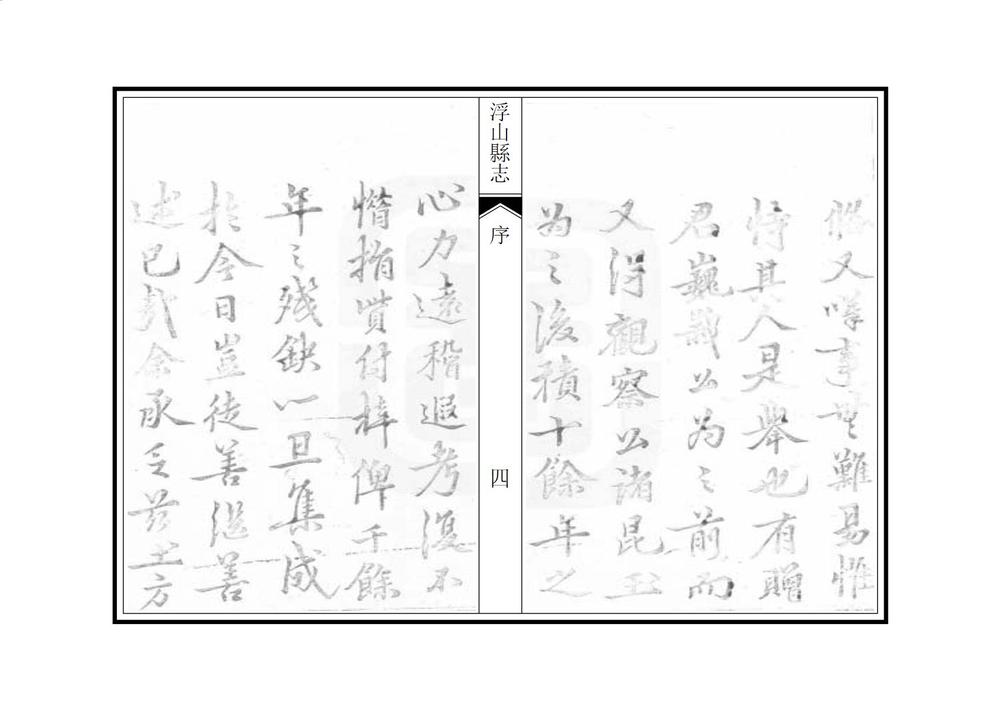 又嘆事無難易惟
待其人是舉也有贈
君巍公為之前而
又得觀察公諸昆玉
為之後積十餘年之
浮山縣志
序
四
心力遠稽遐考復不
惜捐貲付梓俾千餘
年之殘缺一旦集成
於今日豈徒善繼善
述已哉余承乏茲土方